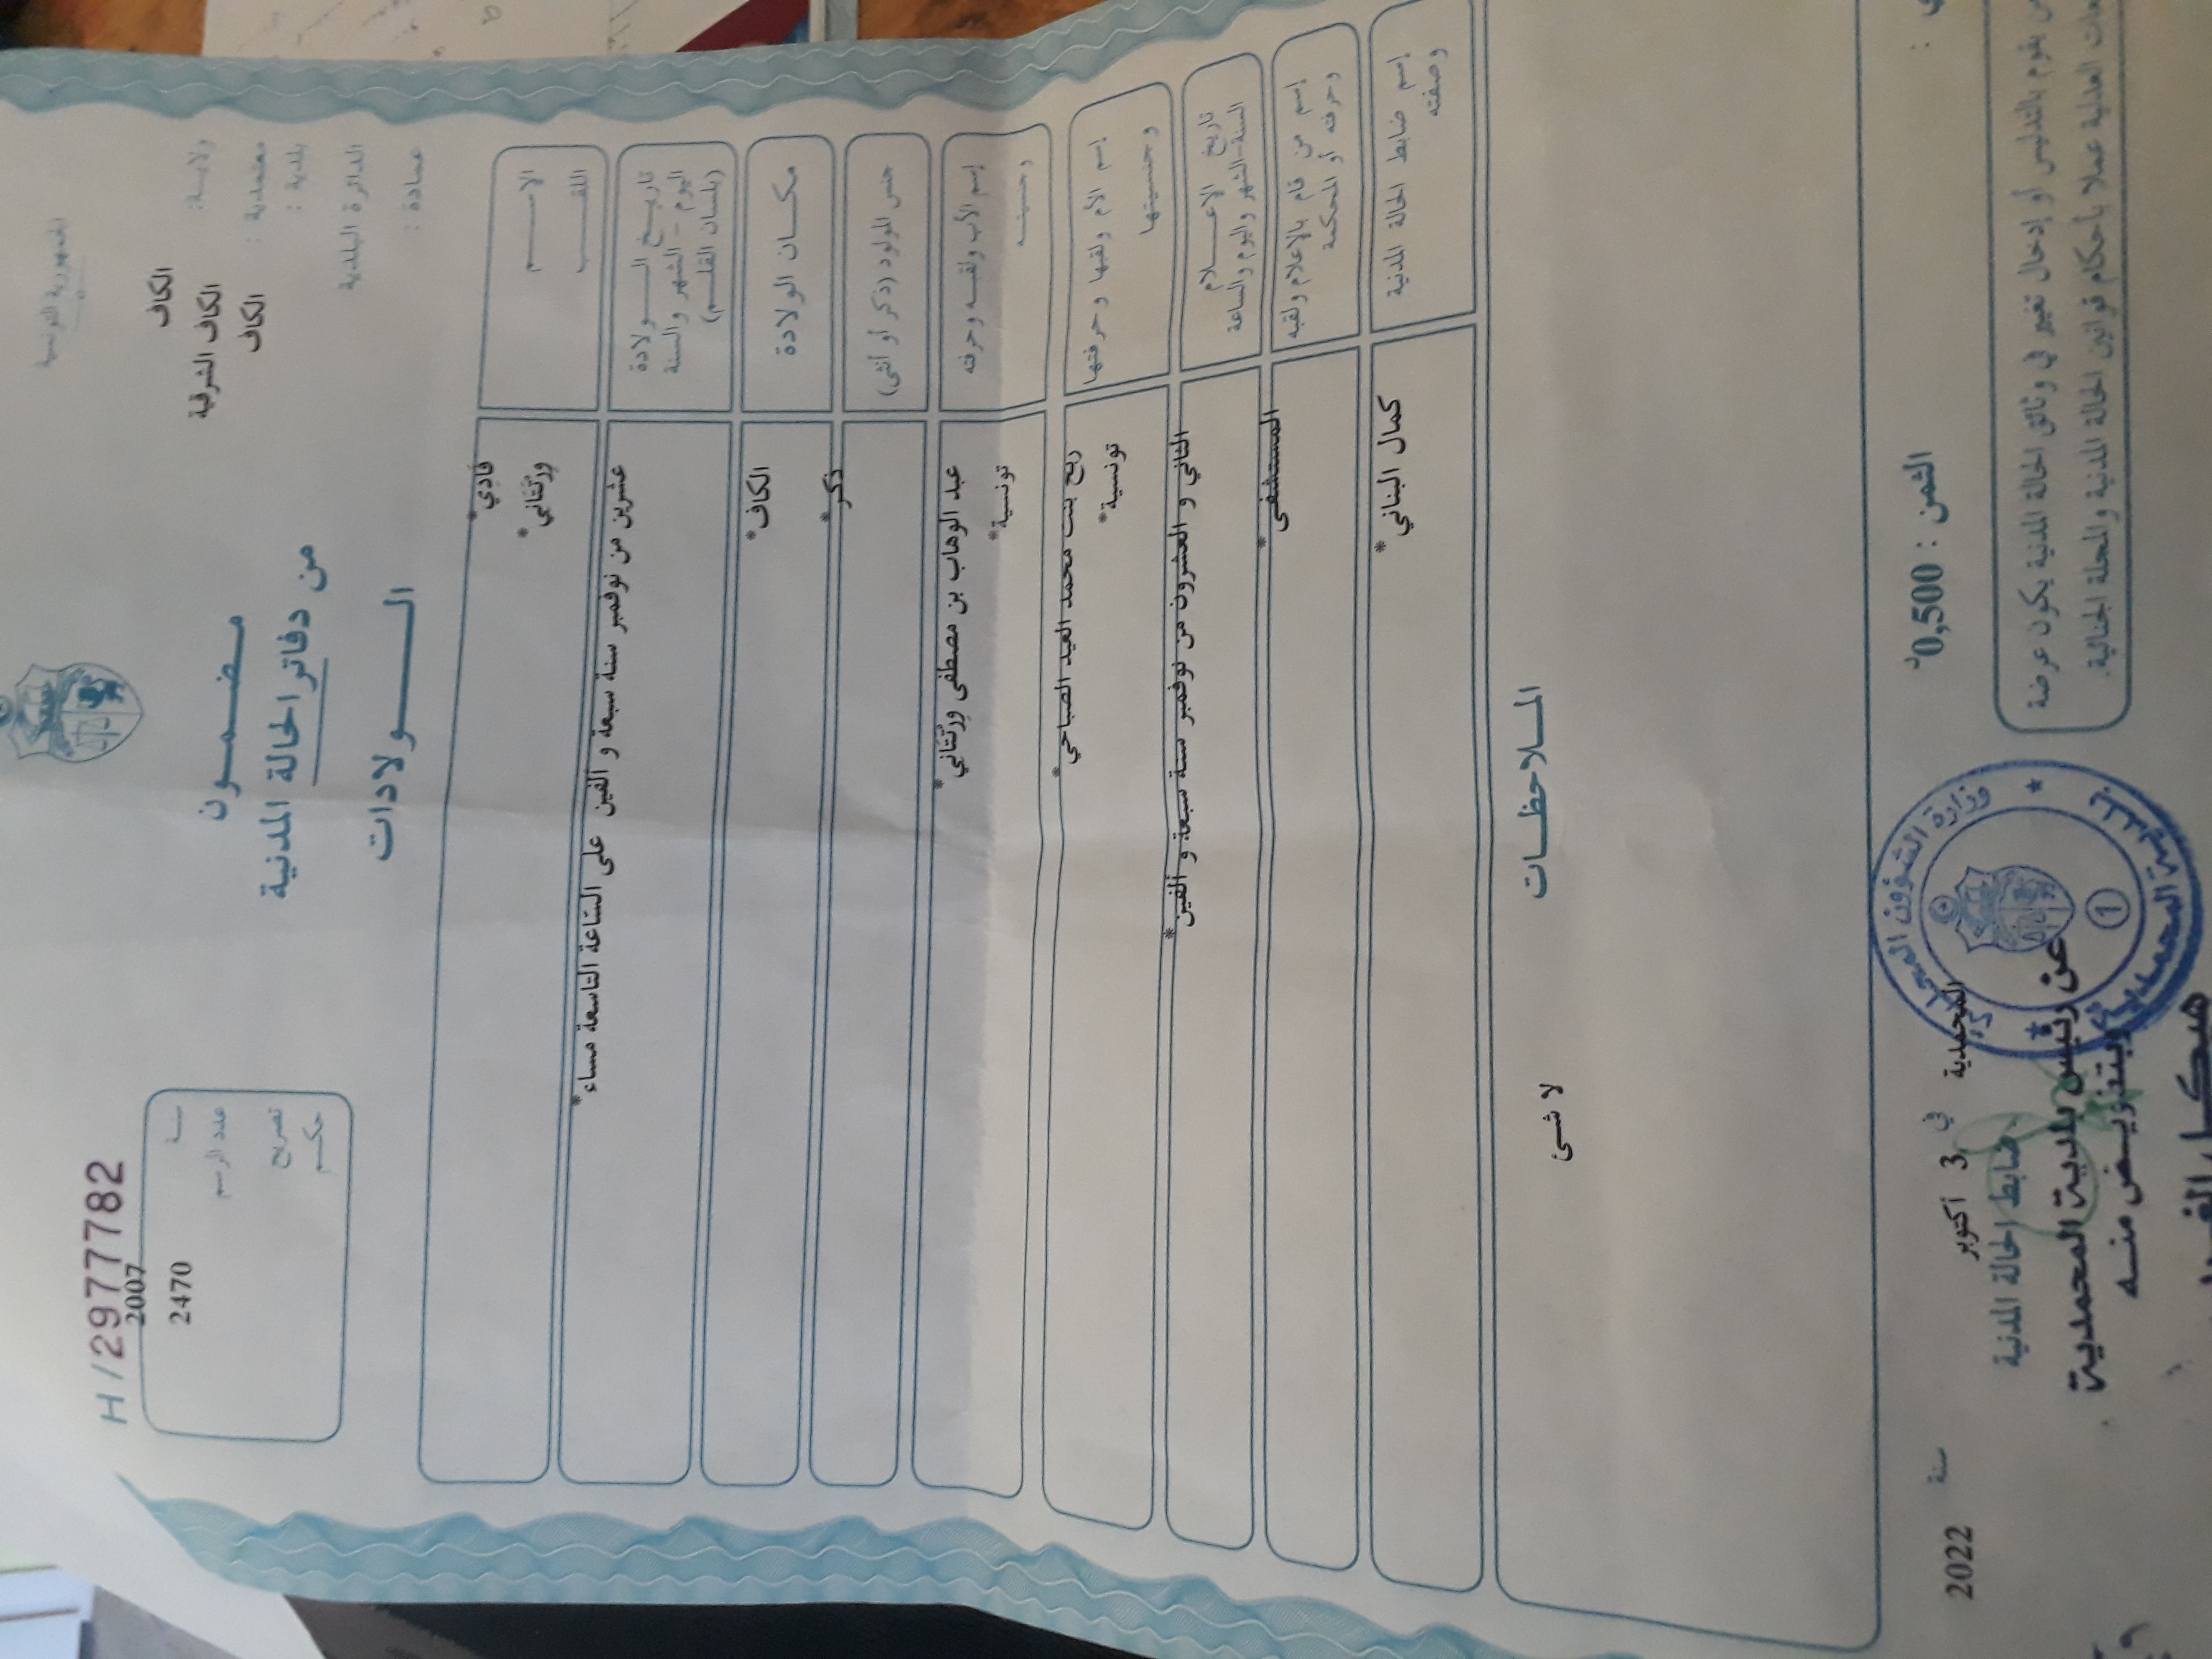 الجمهورية التونسية
H/2977782
ولايــة: الكاف
معتمدية : الكاف الشرقية
بلدية : الكاف
الدائرة البلدية
عمادة :
مـضـمــون
من دفاتر الحالة المدنية
الــــولادات
سنـــة 2007
عدد الرسم 2470
تصريح
حكــم
الاســــم فَادِي*
اللقــــب وِرْتَتَانِي*
تاريــخ الــــولادة
اليوم - الشهر والسنة
(بلسان القلــم)
عشرين من نوفمبر سنة سبعة و ألفين على السّاعة التاسعة مساء*
مكــان الولادة الكاف*
جنس المولود (ذكر أو أنثى) ذكر*
إسم الأب ولقبــه وحرفته عبد الوهاب بن مصطفى وِرْتَتَانِي*
وجنسيتــه تونسية*
إسم الأم ولقبها وحرفتها ربح بنت محمد العيد الصباحي*
وجنسيتها تونسية*
تاريخ الاعــــلام
السنة-الشهر واليوم والساعة
الثاني و العشرون من نوفمبر سنة سبعة و ألفين*
إسم من قام بالاعلام ولقبه
وحرفته أو المحكمة
المستشفى*
إسم ضابط الحالة المدنية
وصفته
كمال البناني*
المــلاحظــات
لا شــئ
الثمن : 0,500د
المحمدية في 3 أكتوبر سنة 2022
ضابط الحالة المدنية
عن رئيس بلدية المحمدية
وبتفويض منه
وزارة الشؤون المحلية
1
من يقوم بالتدليس أو إدخال تغيير في وثائق الحالة المدنية يكون عرضة
العدلية عملا بأحكام قوانين الحالة المدنية والمجلة الجنائية.